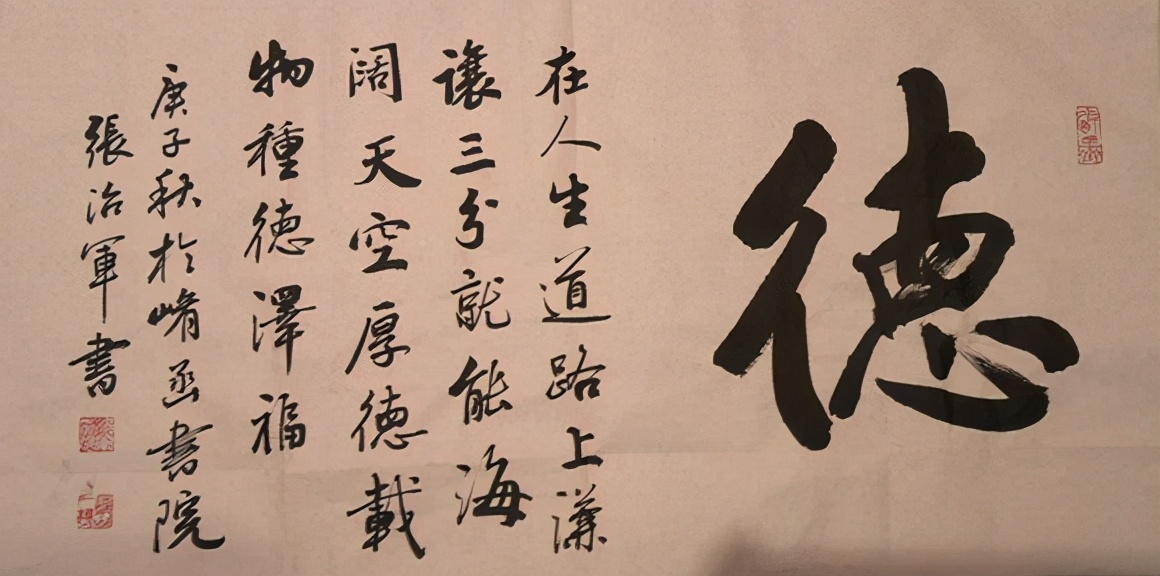 德
在人生道路上謙
讓三分就能海
阔天空厚德載
物種德澤福
庚子秋於崤函書院
張治軍書